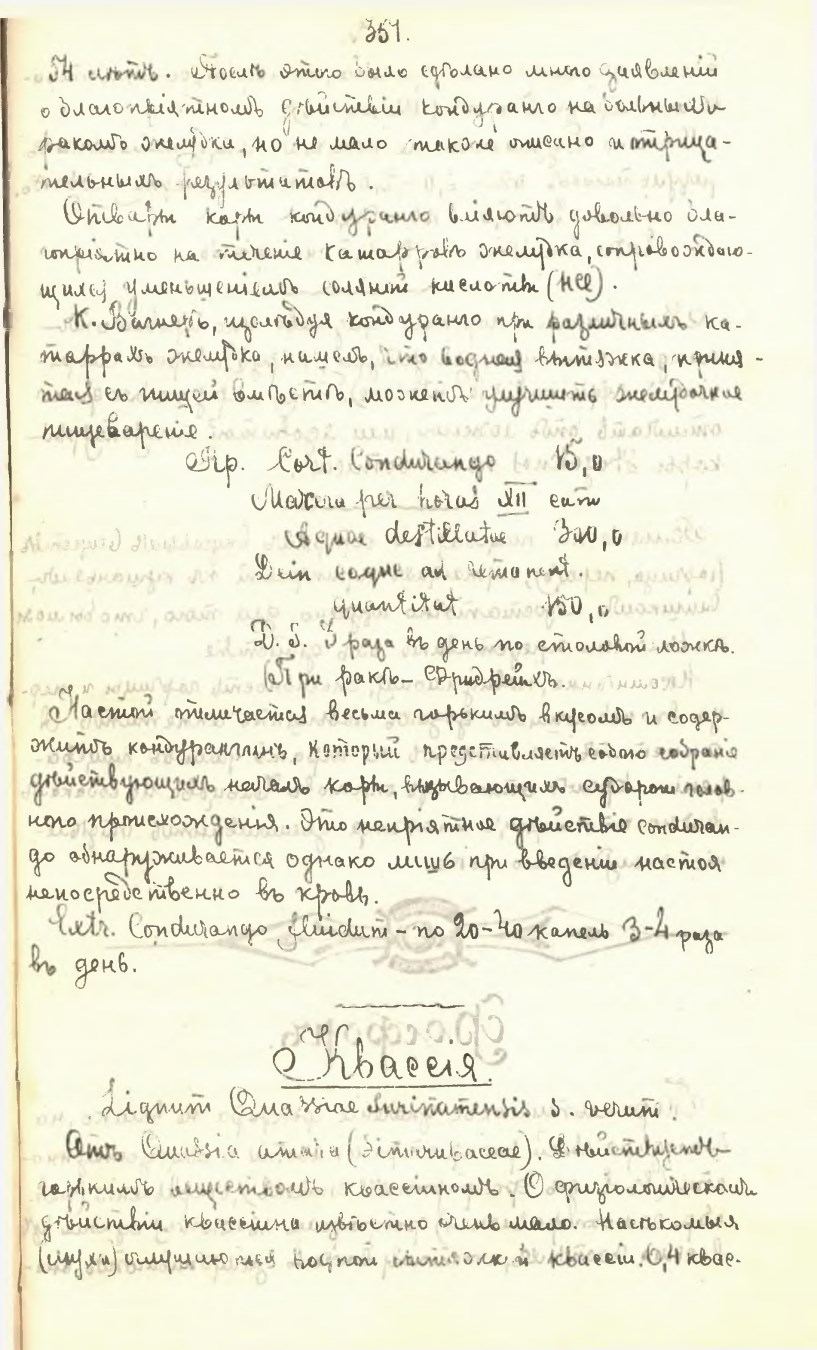 351.
54 лѣтъ. Послѣ этого было сдѣлано много заявленій
о благопріятномъ дѣйствіи кондуранго на больныхъ
ракомъ желудка, но не мало также описано и отрица-
тельныхъ результатовъ.
Отвары коры кондуранго вліяютъ довольно бла-
гопріятно на теченіе катарровъ желудка, сопровождаю-
щихся уменьшеніемъ соляной кислоты (HCl).
К. Вагнеръ, изслѣдуя кондуранго при различныхъ ка-
таррахъ желудка, нашелъ, что водная вытяжка, приня-
тая съ пищей вмѣстѣ, можетъ улучшить желудочное
пищевареніе.
Rp. Cort. Condurango 15,0
Macera per horas XII cum
Aquae destillatae 300,0
Dein coque ad remanent.
quantitat 150,0
D. S. 3 раза въ день по столовой ложкѣ.
(При ракѣ – Фридрейхъ.
Настой отличается весьма горькимъ вкусомъ и содер-
житъ кондурангинъ, который представляетъ собою собраніе
дѣйствующихъ началъ коры, вызывающихъ судороги голов-
ного происхожденія. Это непріятное дѣйствіе conduran-
go обнаруживается однако лишь при введеніи настоя
непосредственно въ кровь.
Extr. Condurango fluidum – по 20–40 капель 3–4 раза
въ день.
Квассія.
Lignum Quassiae Surinamensis s. verum.
Отъ Quassia amara (Simarubaceae). Дѣйствуетъ
горькимъ веществомъ квассіиномъ. О физіологическомъ
дѣйствіи квассіина извѣстно очень мало. Насѣкомыя
(мухи) оглушаются водной вытяжкой квассіи. 0,4 квас-